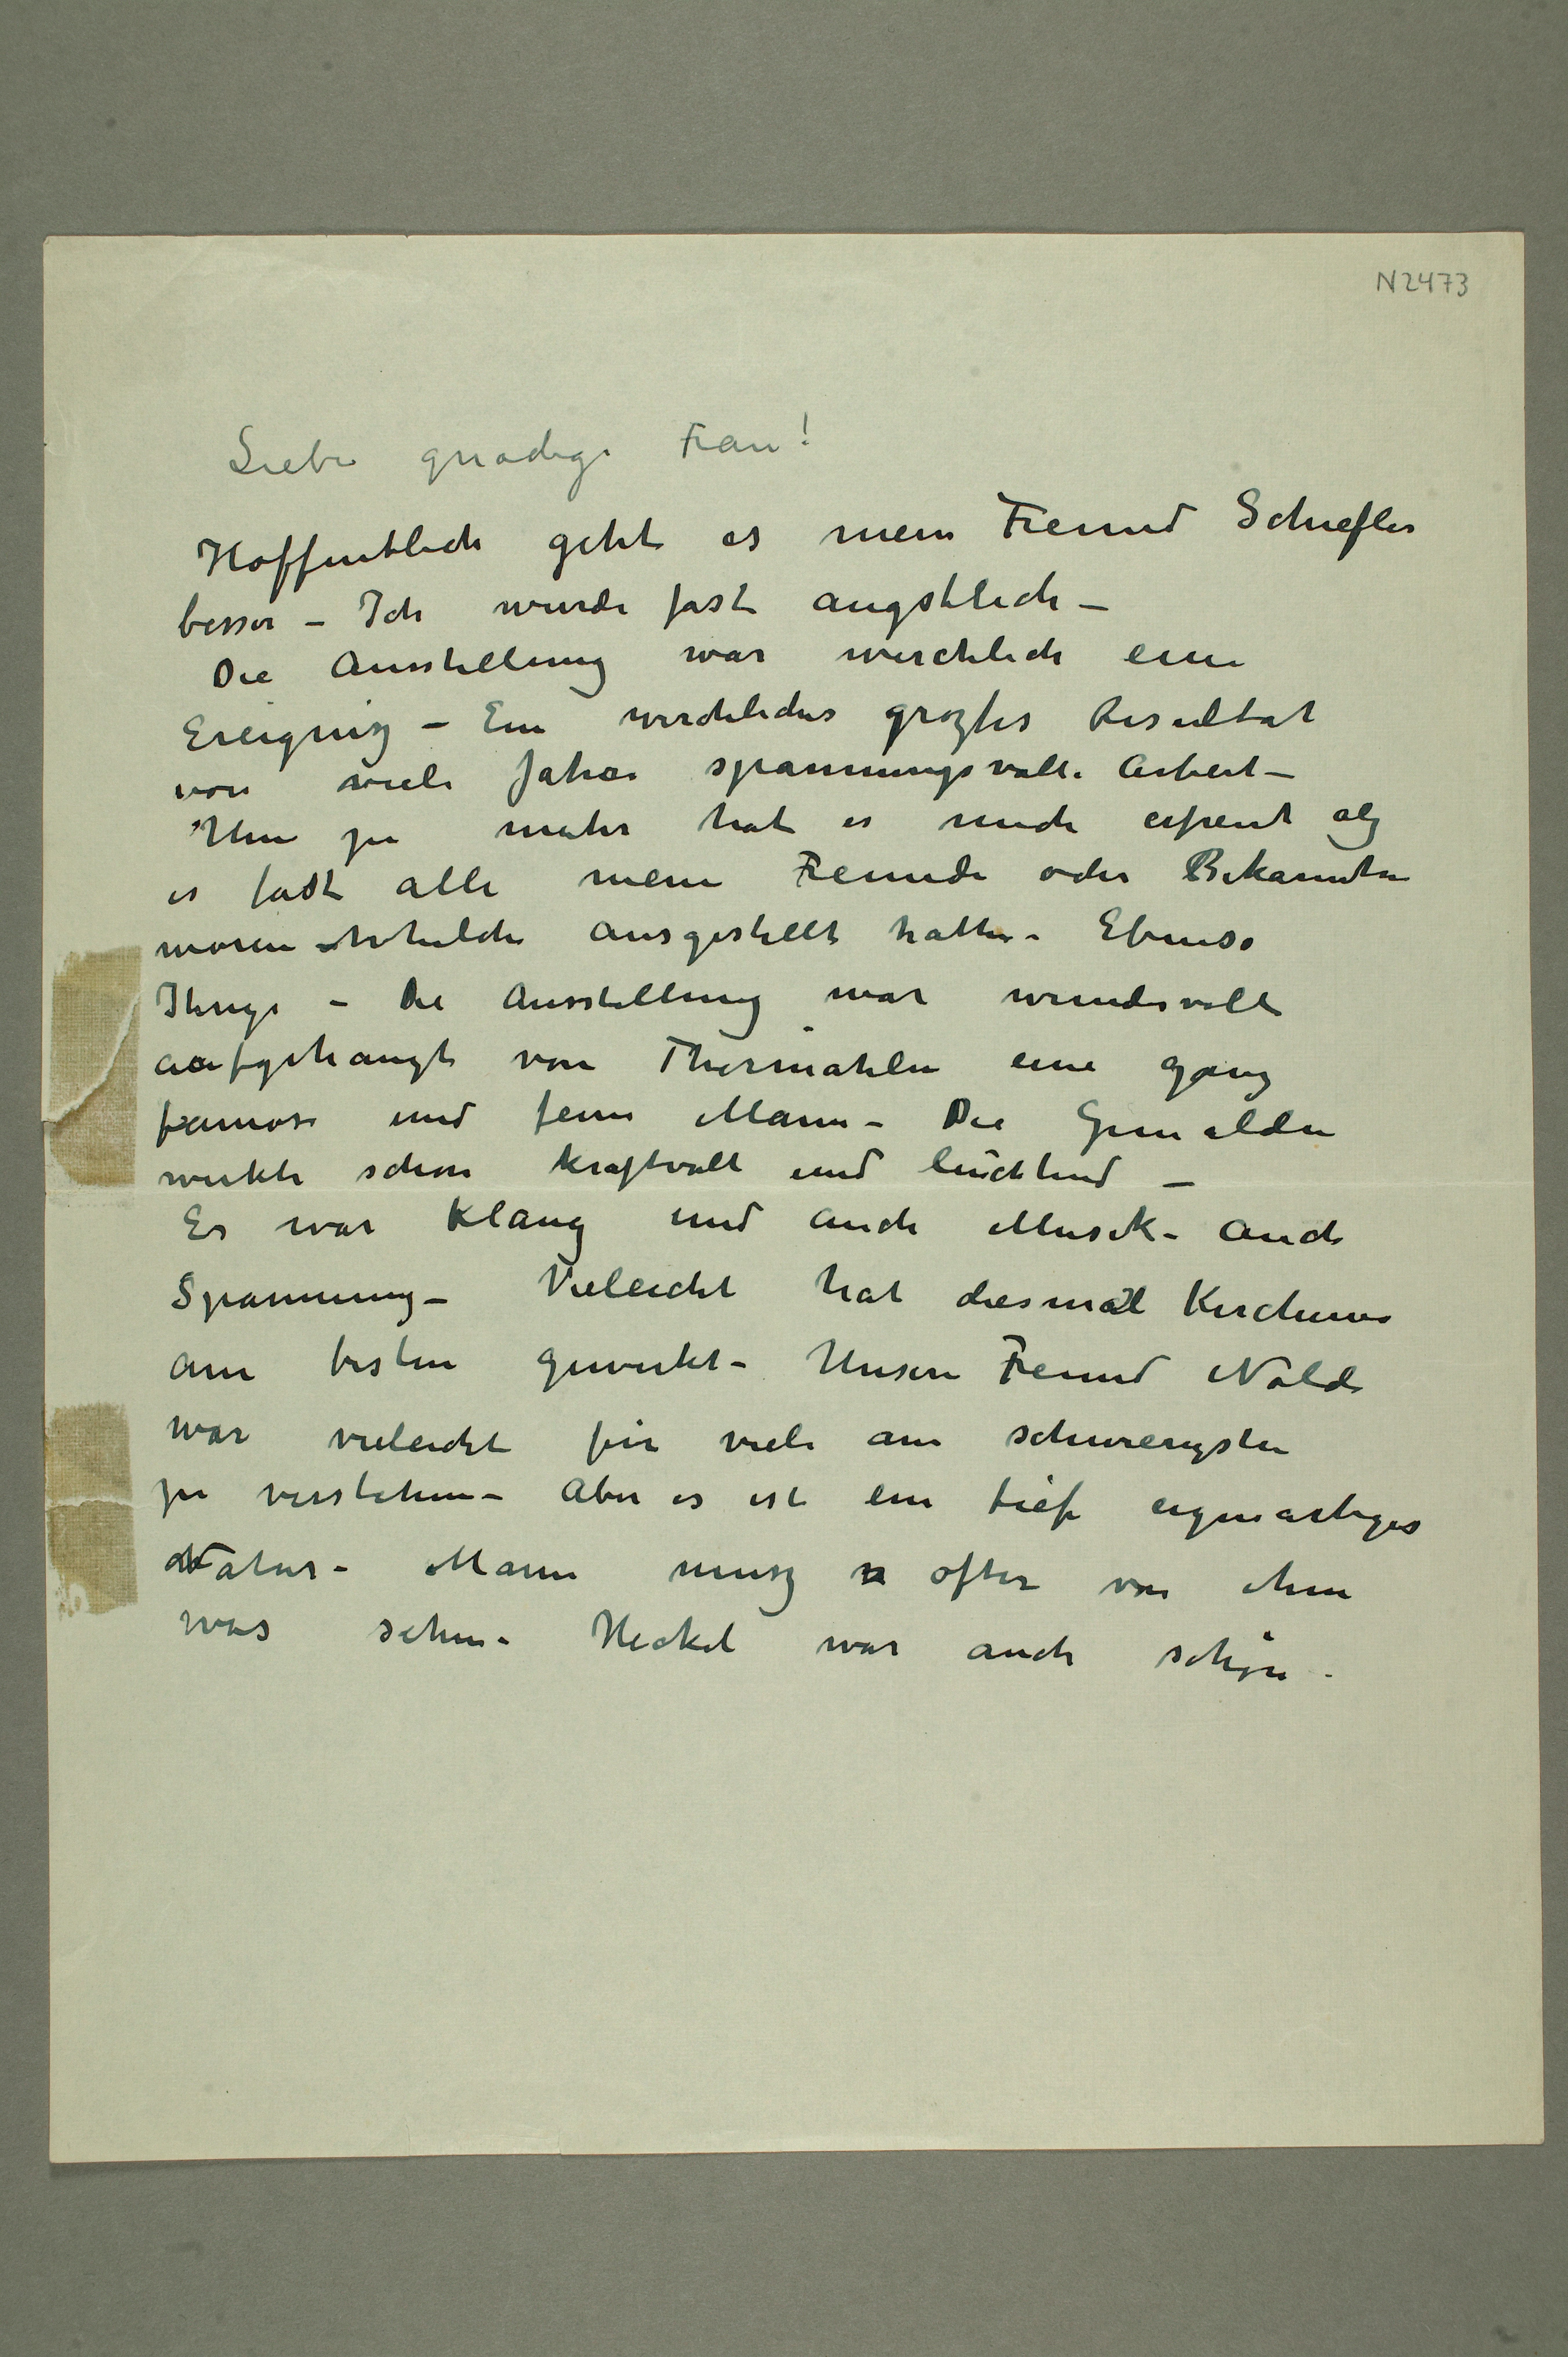 N 2473
Liebe gnädige Frau!
Hoffentlich geht es mein Freund Schiefler
besser – Ich wurde fast angstlich –
Die Ausstellung war wirchlich eine
Ereigniz – Ein wirchliches grozses Resultat
von viele Jahre spannungsvolle Arbeit –
Um zu mehr hat es mich erfreut alz
es fast alle meine Freunde oder Bekannten
waren welche ausgestellt hatte – Ebenso
Thiis – Die Ausstellung war wundervoll
aufgehängt von Thormählen eine ganz
famose und feine Mann – Die Gemälden
wirkte schon kraftvoll und leuchtend –
Es war Klang und auch Musik – auch
Spannung – Vieleicht hat diesmal Kirchner
am besten gewirkt – Unsere Freund Nolde
war vieleicht für viele am schwierigsten
zu verstehen – Aber es ist ein tief eigenartiges
Natur – Mann musz öfter von ihm
was sehen – Heckel war auch schön –